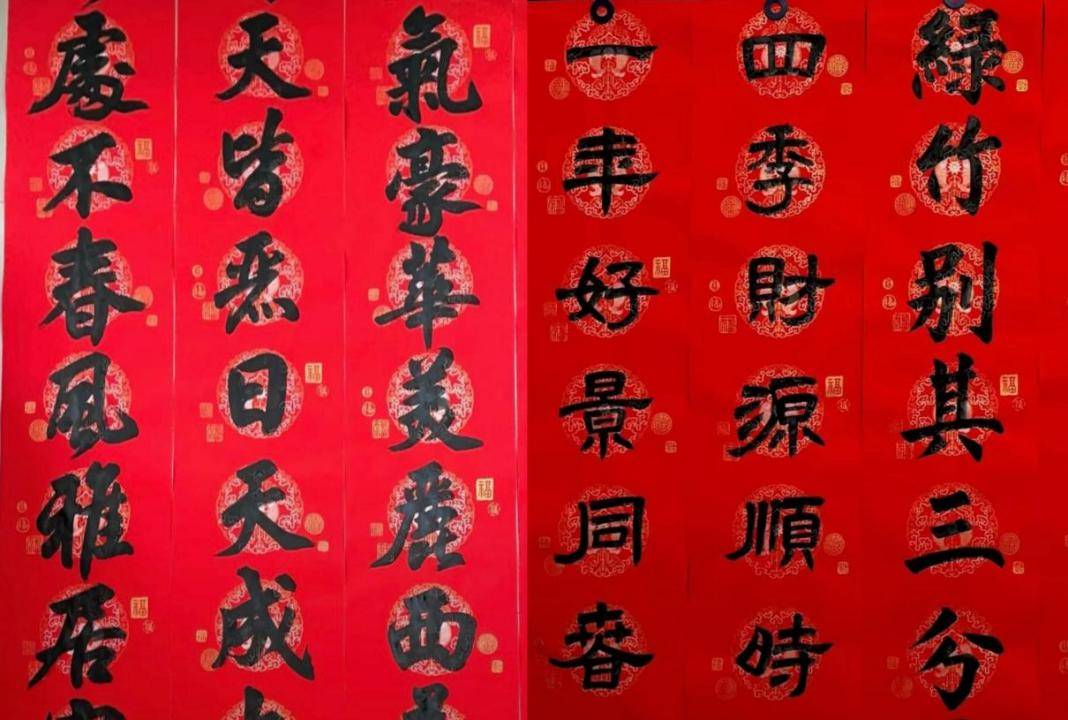 綠竹別其三分
四季財源順時
一年好景同春
氣豪華美西
天皆日天成
處不春風雅居